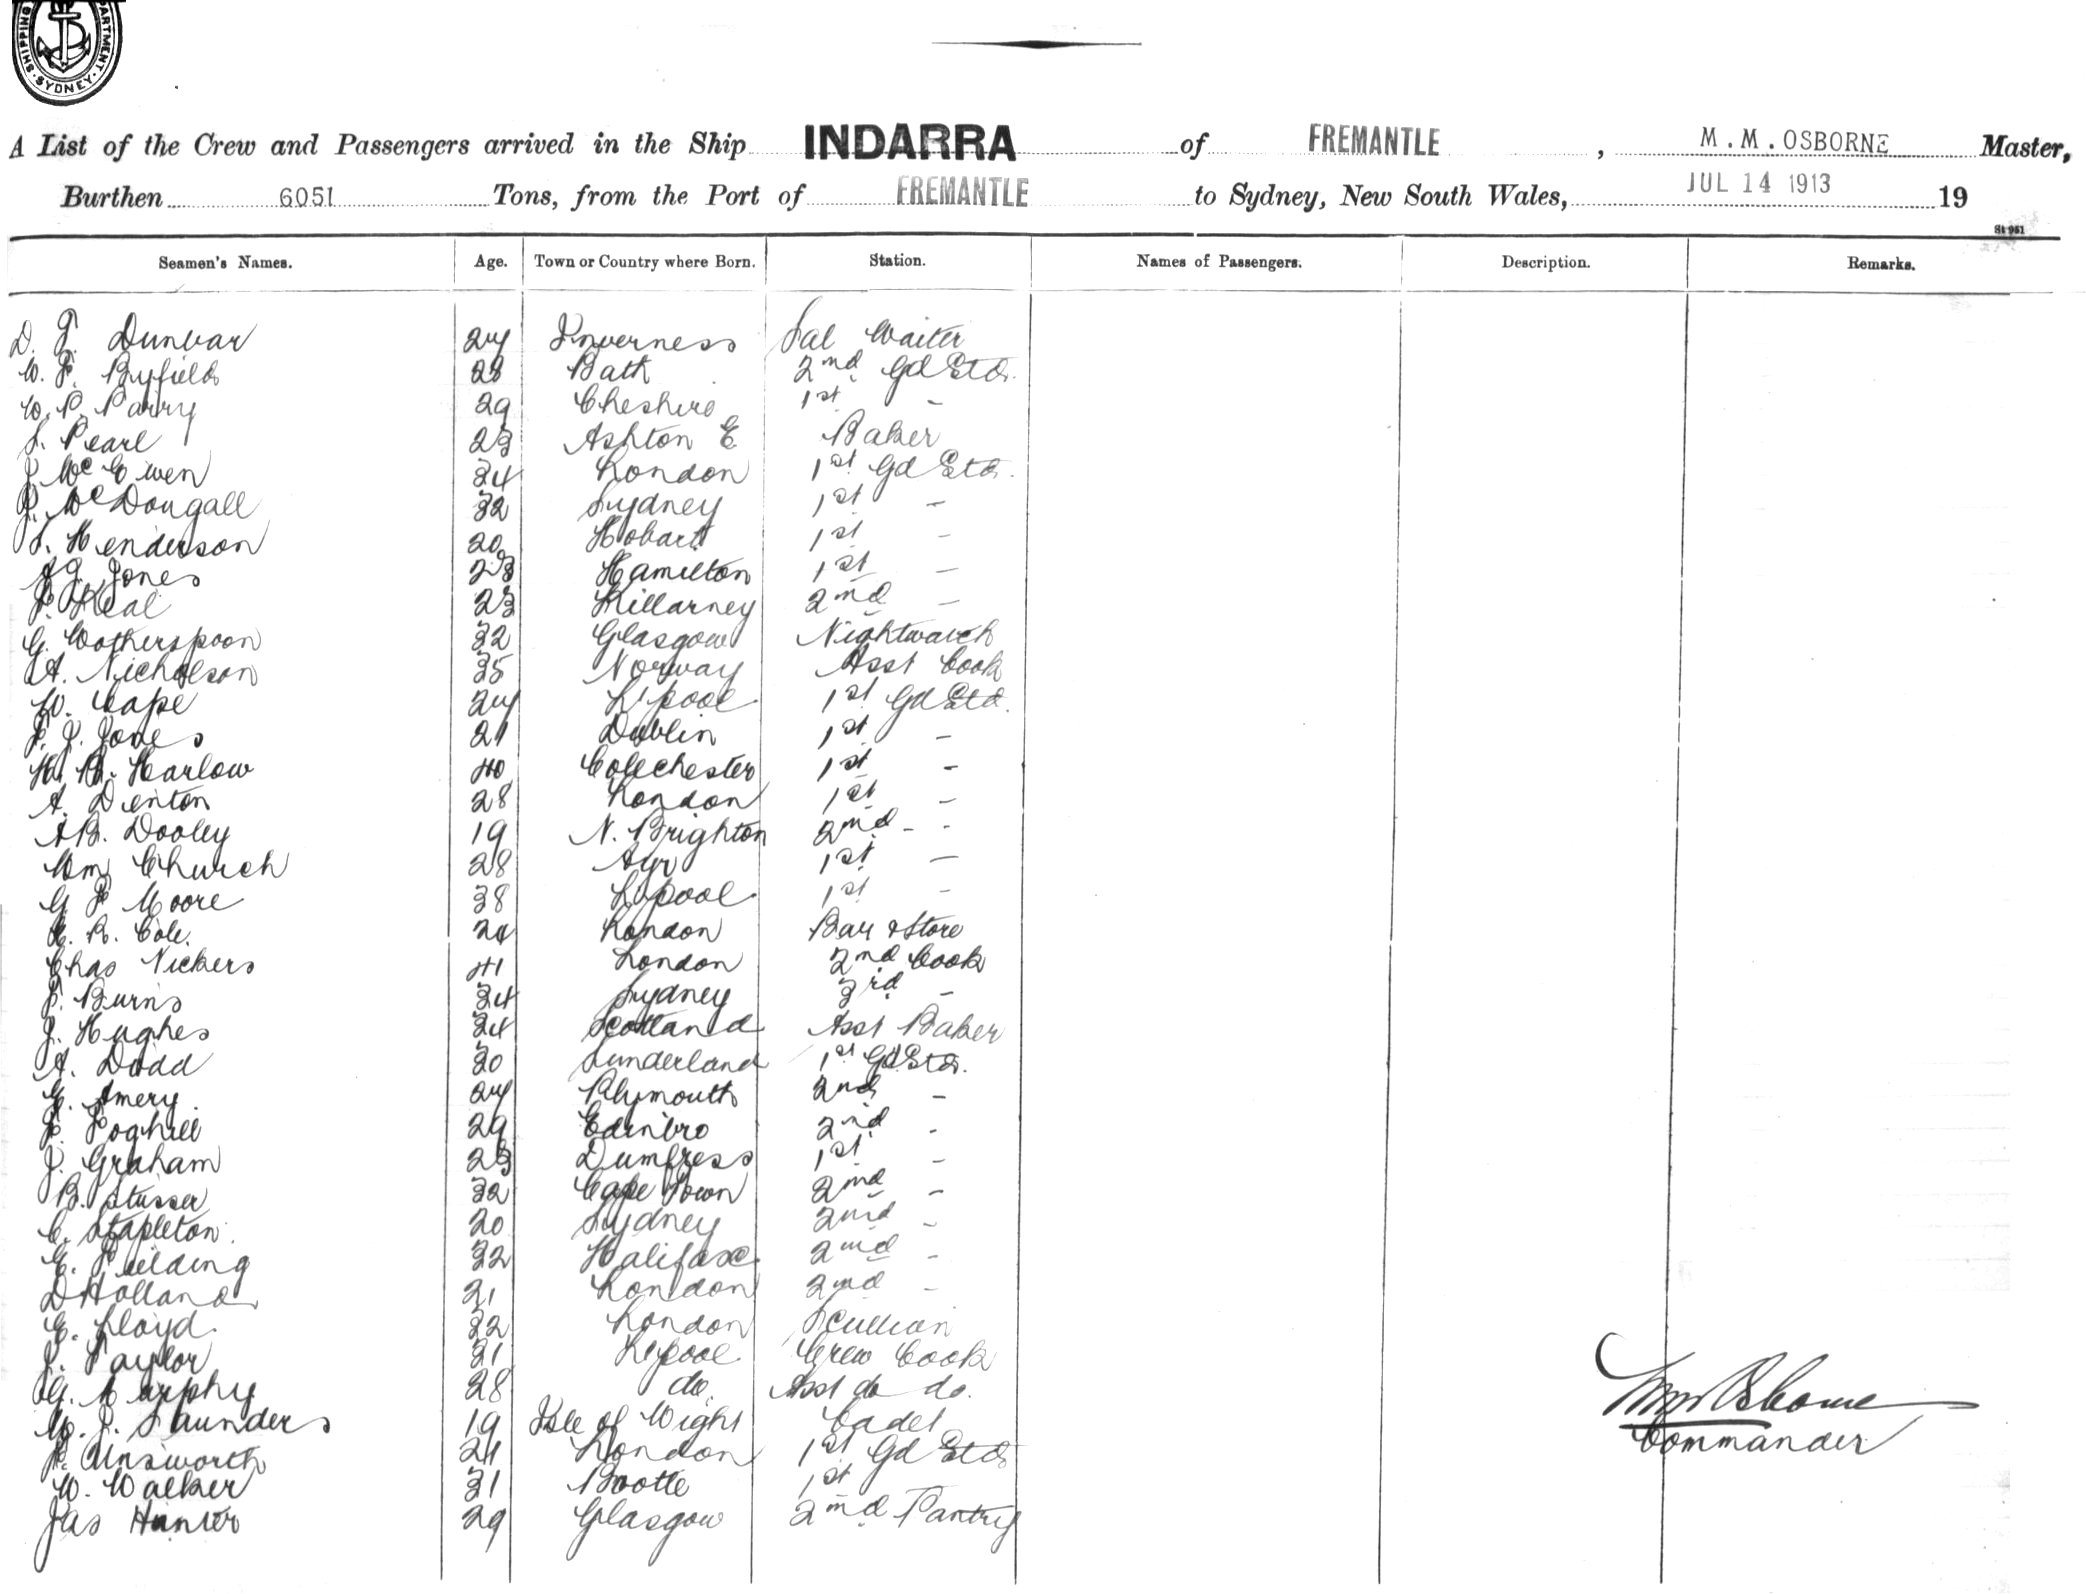 SHIPPING DEPARTMENT SYDNEY
A List of the Crew and Passengers arrived in the Ship INDARRA of FREMANTLE, M.M. OSBORNE Master,
Burthen 6051 Tons, from the Port of FREMANTLE to Sydney, New South Wales, JUL 14 1913 19
St 951
Seamen's Names. Age. Town or Country where Born. Station. Names of Passengers. Description. Remarks.
Dunbar Inverness Sal Waiter
W. F. Byfield 28 Bath 2nd Gd Std.
W. P. Parry 29 Cheshire 1st -
S. Pearl 23 Ashton E Baker
J. McEwen 34 London 1st Gd Std.
J. McDougall 32 Sydney 1st -
S. Henderson 20 Hobart 1st -
Jones 28 Hamilton 1st -
Killarney 2nd -
G. Wotherspoon 32 Glasgow Nightwatch
A. Nicholson 35 Norway Asst Cook
W. Cape L'pool 1st Gd Std.
J. Jones 21 Dublin 1st -
H. B. Harlow 40 Colechester 1st -
A. Denton 28 London 1st -
A B. Dooley 19 N. Brighton 2nd - -
Wm Church 28 Ayr 1st -
G. F. Moore 38 L'pool 1st -
R. Cole. London Bar & Store
Chas Vickers 41 London 2nd Cook
Burns 34 Sydney 3rd -
J. Hughes 34 Scotland Asst Baker
A. Dodd Sunderland 1st Gd Std.
Amery. Plymouth 2nd -
F. Foghill 29 Edinbro 2nd -
J. Graham 23 Dumfress 1st -
B. Stusser 32 Cape Town 2nd -
C. Stapleton. 20 Sydney 2nd -
E. Fielding 22 Halifax. 2nd -
D Holland 21 London 2nd -
E. Lloyd. 22 London Scullion
J. Taylor L'pool Crew Cook
G. Murphy 28 do. Asst do do.
W. J. Saunders 19 Isle of Wight Cadet
Unsworth London 1st Gd Std
W. Walker 31 Bootle 1st
Jas Hunter 29 Glasgow 2nd Pantry
Osborne
Commander